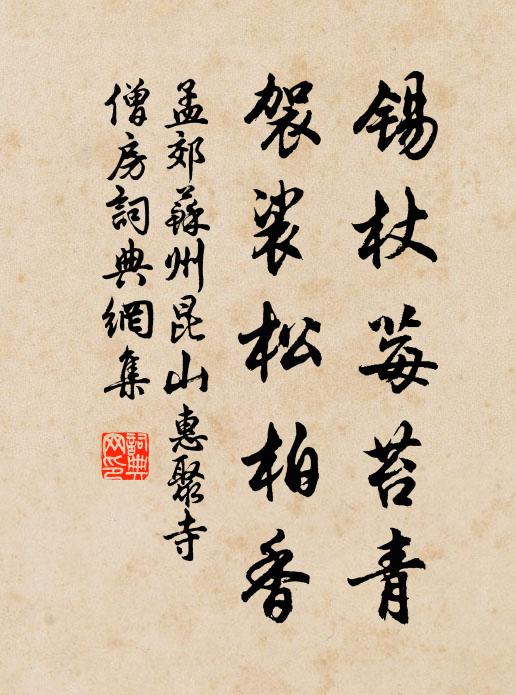 锡杖莓苔青
袈裟松柏香
孟郊蘇州昆山惠聚寺
僧房詞典網集
詞典网印